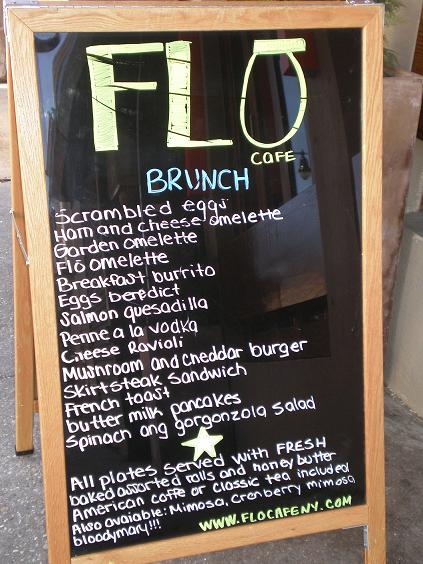 FLŌ
CAFE
BRUNCH
Scrambled eggs
Ham and cheese omelette
Garden omelette
Flō omelette
Breakfast burrito
Eggs benedict
Salmon quesadilla
Penne a la vodka
Cheese Ravioli
Mushroom and cheddar burger
Skirtsteak Sandwich
French toast
butter milk pancakes
Spinach ang gorgonzola Salad
All plates served with FRESH
baked assorted rolls and honey butter
American coffe or classic tea included
Also avaiable: Mimosa, crenberry mimosa
bloodymary!!!
WWW.FLOCAFENY.COM